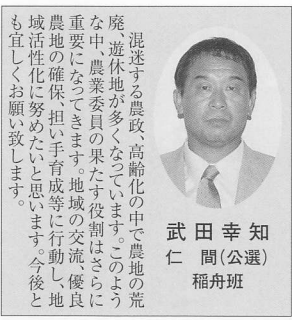 混迷する農政、高齢化の中で農地の荒
廃、遊休地が多くなっています。このよう
な中、農業委員の果たす役割はさらに
重要になってきます。地域の交流、優良
農地の確保、担い手育成等に行動し、地
域活性化に努めたいと思います。今後と
も宜しくお願い致します。
武田幸知
仁　間(公選)
稲舟班